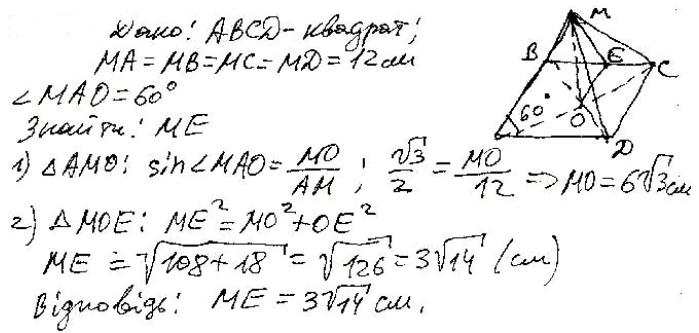 Дано: ABCD - квадрат;
MA = MB = MC = MD = 12 см
∠MAO = 60°
Знайти: ME
1) △AMO: sin∠MAO = MO/AM ; √3/2 = MO/12 ⇒ MO = 6√3 см
2) △MOE: ME² = MO² + OE²
ME = √(108 + 18) = √126 = 3√14 (см)
Відповідь: ME = 3√14 см.
M
B
E
C
60°
O
D